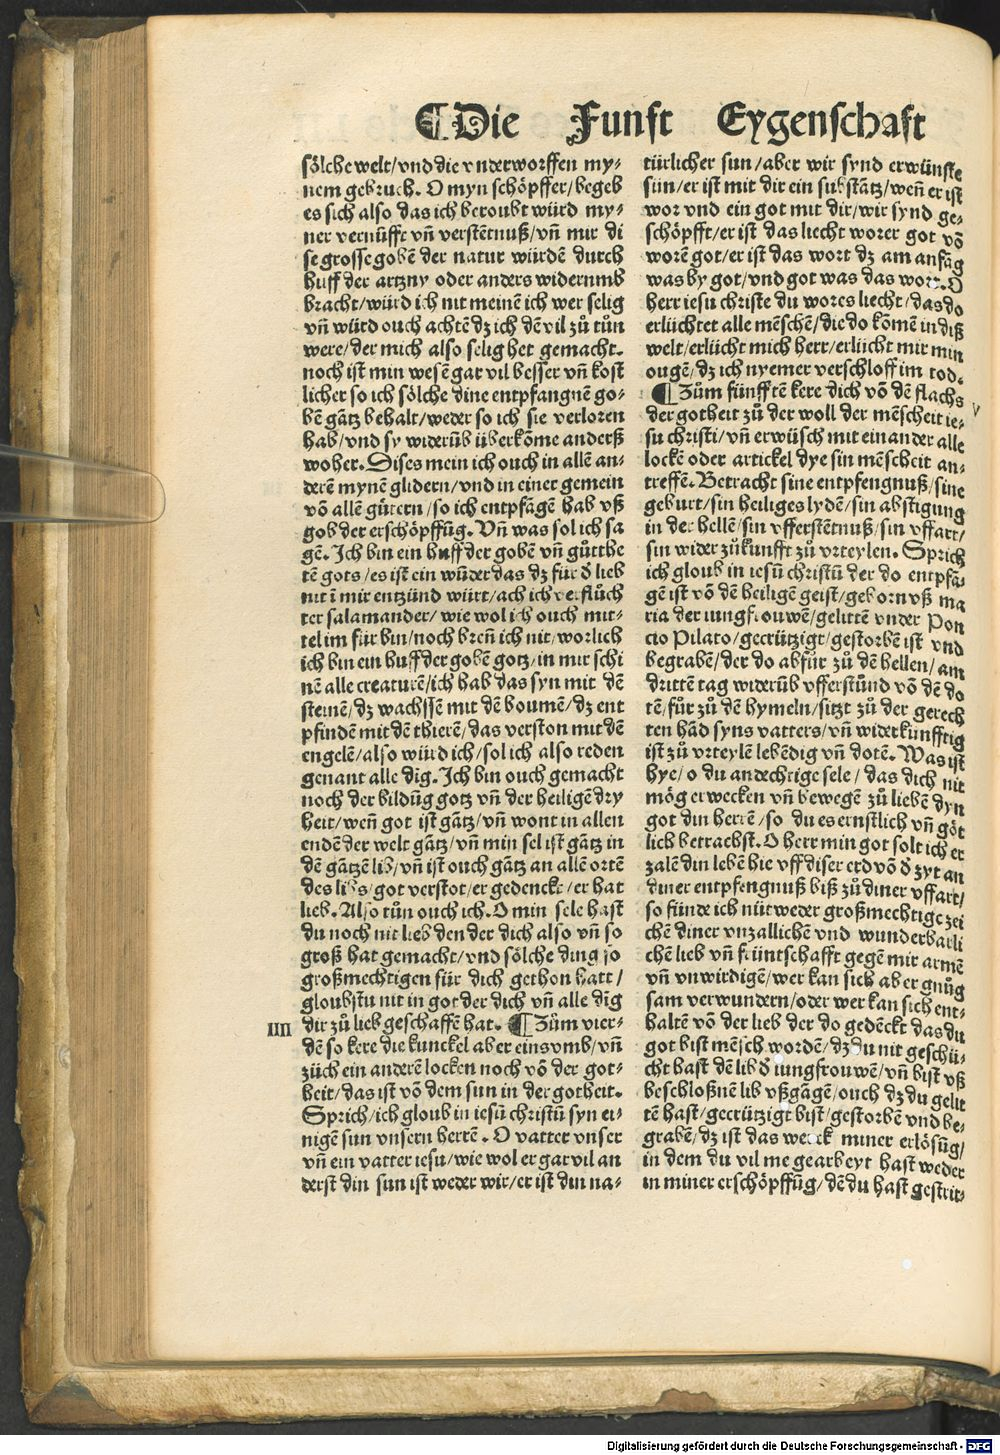 ¶ Die Funfft Eygenschafft
sölche welt/vnd die vnderworffen my⸗
nem gebruch. O myn schöpffer/begeb
es sich also das ich beroubt würd my⸗
ner vernüfft vñ verstētnuß/vñ mir di
se grosse gobē der natur würdē durch
huff der artzny oder anders widerumb
bracht/würd ich nit meinē ich wer selig
vñ würd ouch achtē dz ich dē vil zů tůn
were/der mich also selig het gemacht.
noch ist min wesē gar vil besser vñ kost
licher so ich sölche dine entpfangnē go⸗
bē gātz behalt/weder so ich sie verloren
hab/vnd sy widerūb überkōme anderß
woher. Dises mein ich ouch in allē an⸗
derē mynē glidern/vnd in einer gemein
vō allē gütern/so ich entpfāgē hab vß
gob der erschöpffūg. Vñ was sol ich sa
gē. Ich bin ein huff der gobē vñ gůtthe
tē gots/es ist ein wūder das dz für d̄ lieb
nit ī mir entzünd würt/ach ich verflůch
ter salamander/wie wol ich ouch mit⸗
tel im für bin/noch breñ ich nit/worlich
ich bin ein huff der gobē gotz/in mir schi
nē alle creaturē/ich hab das syn mit dē
steinē/dz wachssē mit dē boumē/dz ent
pfindē mit dē thierē/das verston mit dē
engelē/also würd ich/sol ich also reden
genant alle dīg. Ich bin ouch gemacht
noch der bildūg gotz vñ der heiligē dry
heit/weñ got ist gātz/vñ wont in allen
endē der welt gātz/vñ min sel ist gātz in
dē gātzē lib/vñ ist ouch gātz an allē ortē
des libs/got verstot/er gedenckt/er hat
lieb. Also tůn ouch ich. O min sele hast
du noch nit lieb den der dich also vñ so
groß hat gemacht/vnd sölche ding so
großmechtigen für dich gethon hatt/
gloubstu nit in got der dich vñ alle dīg
dir zů lieb geschaffē hat. ¶ Zům vier⸗
IIII
dē so kere die kunckel aber eins vmb/vñ
züch ein anderē locken noch vō der got⸗
heit/das ist vō dem sun in der gotheit.
Sprich/ich gloub in iesū christū syn ei⸗
nigē sun vnsern herrē. O vatter vnser
vñ ein vatter iesu/wie wol er gar vil an
derst din sun ist weder wir/er ist din na⸗
türlicher sun/aber wir synd erwünste
sün/er ist mit dir ein substātz/weñ er ist
wor vnd ein got mit dir/wir synd ge⸗
schöpfft/er ist das liecht worer got vō
worē got/er ist das wort dz am anfāg
was by got/vnd got was das wort. O
herr iesu christe du wores liecht/das do
erlüchtet alle mēschē/die do kōmē in diß
welt/erlücht mich herr/erlücht mir min
ougē/dz ich nyemer verschloff im tod.
¶ Zům fünfftē kere dich vō dē flachs
V
der gotheit zů der woll der mēscheit ie⸗
su christi/vñ erwüsch mit ein ander alle
lockē oder artickel dye sin mēscheit an⸗
treffē. Betracht sine entpfengnuß/sine
geburt/sin heiliges lydē/sin abstigung
in der hellē/sin vfferstētnuß/sin vffart/
sin wider zůkunfft zů vrteylen. Sprich
ich gloub in iesū christū der do entpfā⸗
gē ist vō dē heiligē geist/geborn vß ma
ria der iungfrouwē/gelittē vnder Pon
cio Pilato/gecrützigt/gestorbē ist vnd
begrabē/der do abfůr zů dē hellen/am
drittē tag widerūb vfferstůnd vō dē do
tē/für zů dē hymeln/sitzt zů der gerech
ten hād syns vatters/vñ widerkünfftig
ist zů vrteylē lebēdig vñ dotē. Was ist
hye/o du andechtige sele/das dich nit
mög erwecken vñ bewegē zů liebē dyn
got din herrē/so du es ernstlich vñ göt
lich betrachst. O herr min got solt ich er
zalē din lebē hie vff diser erd vō d̄ zyt an
diner entpfengnuß biß zů diner vffart/
so fünde ich nüt weder großmechtige zei
chē diner vnzallichen vnd wunderbarli
chē lieb vñ früntschafft gegē mir armē
vñ vnwirdigē/wer kan sich aber gnůg
sam verwundern/oder wer kan sich ent⸗
haltē vō der lieb der do gedēckt das du
got bist mēsch wordē/dz du nit geschü⸗
cht hast dē lib d̄ iungfrouwē/vñ bist vß
beschloßnē lib vßgāgē/ouch dz du gelit
tē hast/gecrützigt bist/gestorbē vnd be⸗
grabē/dz ist das werck miner erlösūg/
in dem du vil me gearbeyt hast weder
in miner erschöpffūg/dē du hast gestrit⸗
Digitalisierung gefördert durch die Deutsche Forschungsgemeinschaft - DFG